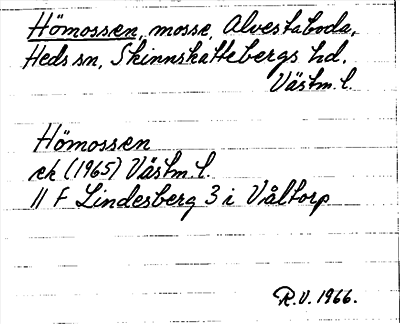 Hömossen, mosse, Alvestaboda,
Heds sn, Skinnskattebergs hd.
Västm. l.
Hömossen
ek (1965) Västm. l.
// F Lindesberg 3 i Våltorp
R.V. 1966.